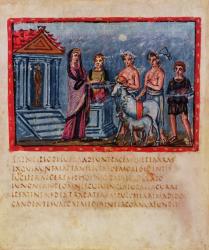 PRINCIPIODELVBRAADEVNTPACEMQVEPERARAS
EXQVIRVNTMACTANTLECTASDEMOREBIDENTIS
LEGIFERAECERERIPHOEBOQVEPATRIQVELYAEO
IVNONIANTEOMNISCVIVINCLAIVGALIACVRAE
IPSATENENSDEXTRAPATERAMPVLCHERRIMADIDO
CANDENTISVACCAEMEDIAINTERCORNVAFVNDIT